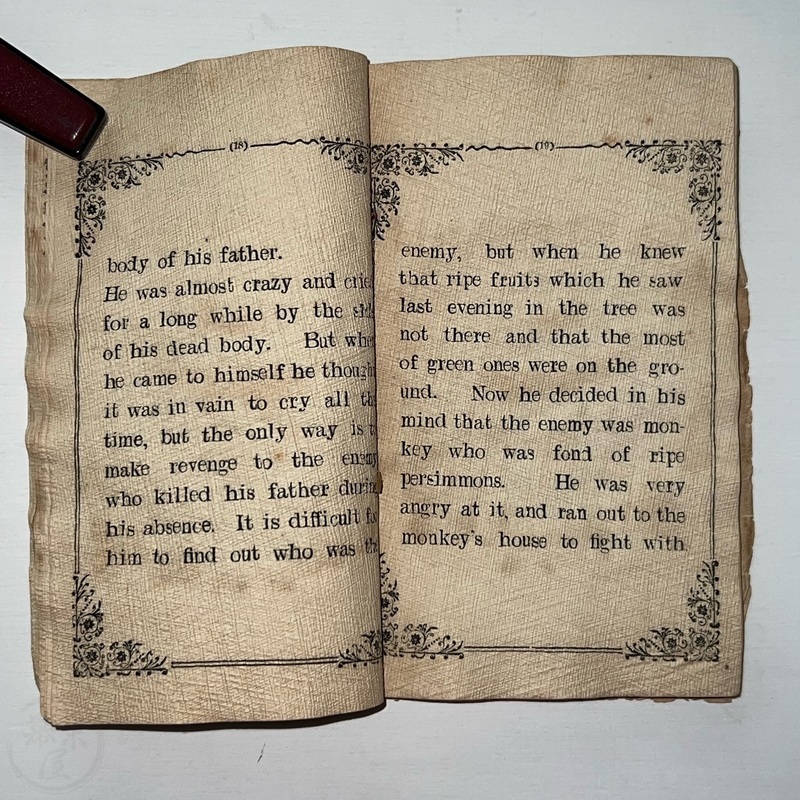 (18)
body of his father.
He was almost crazy and
for a long while by the
of his dead body. But
he came to himself he
it was in vain to cry all
time, but the only way is
make revenge to the
who killed his father
his absence. It is difficult
him to find out who was
(19)
enemy, but when he knew
that ripe fruits which he saw
last evening in the tree was
not there and that the most
of green ones were on the gro-
und. Now he decided in his
mind that the enemy was mon-
key who was fond of ripe
persimmons. He was very
angry at it, and ran out to the
monkey's house to fight with